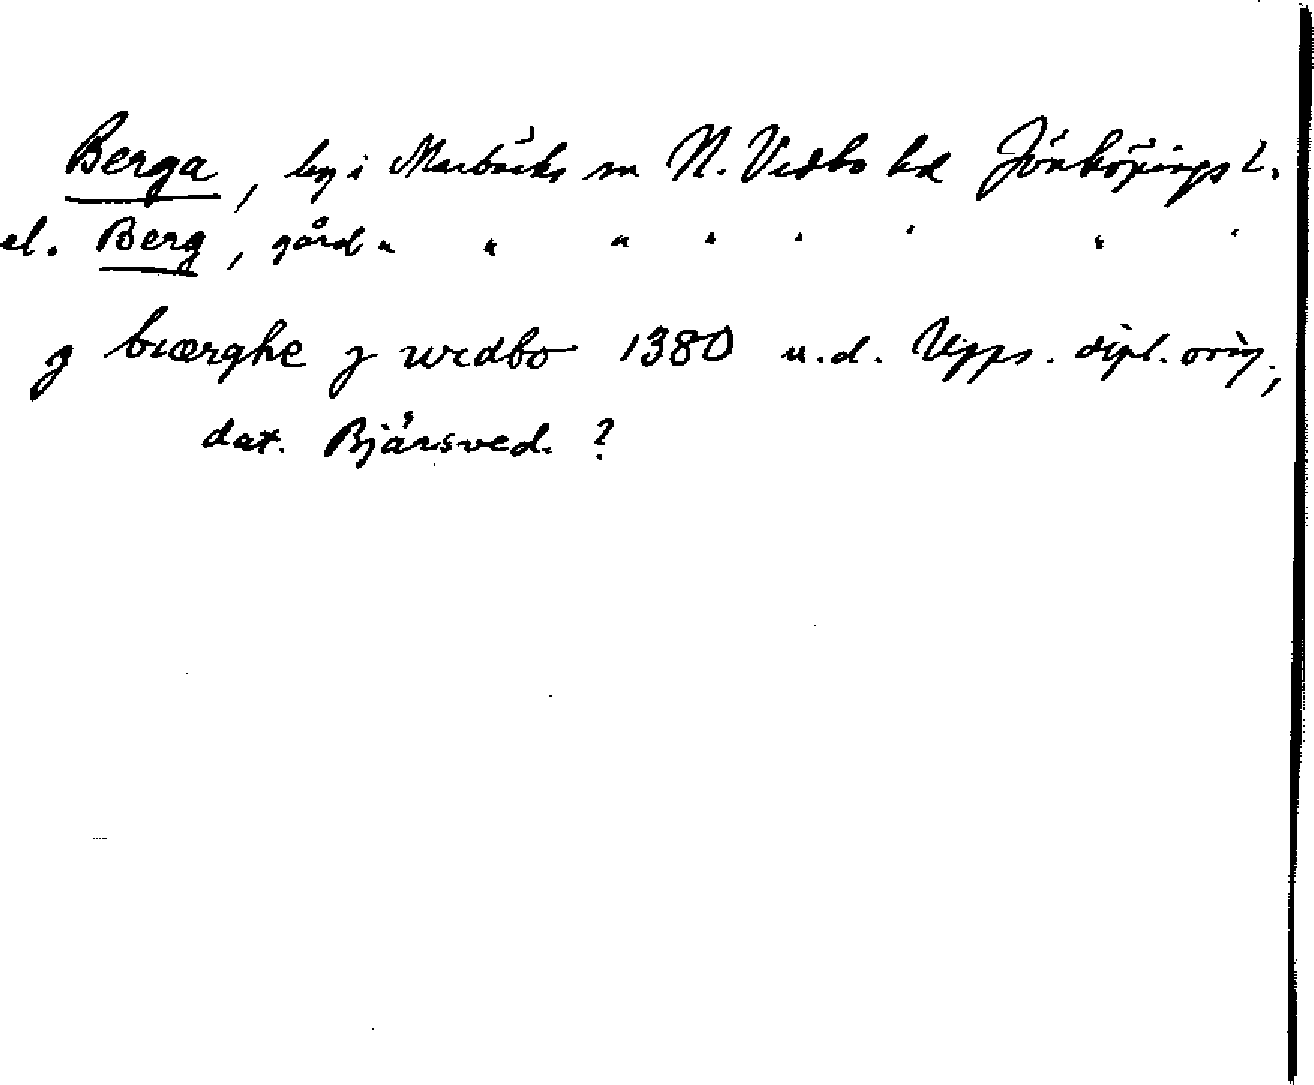 Berga, by i Marbäcks sn N. Vedbo hd Jönköpings l.
el. Berg, gård " " " " " " " "
j biærghe j wedbo 1380 u.d. Upps. dipl. orig.,
dat. Bjärsved. ?